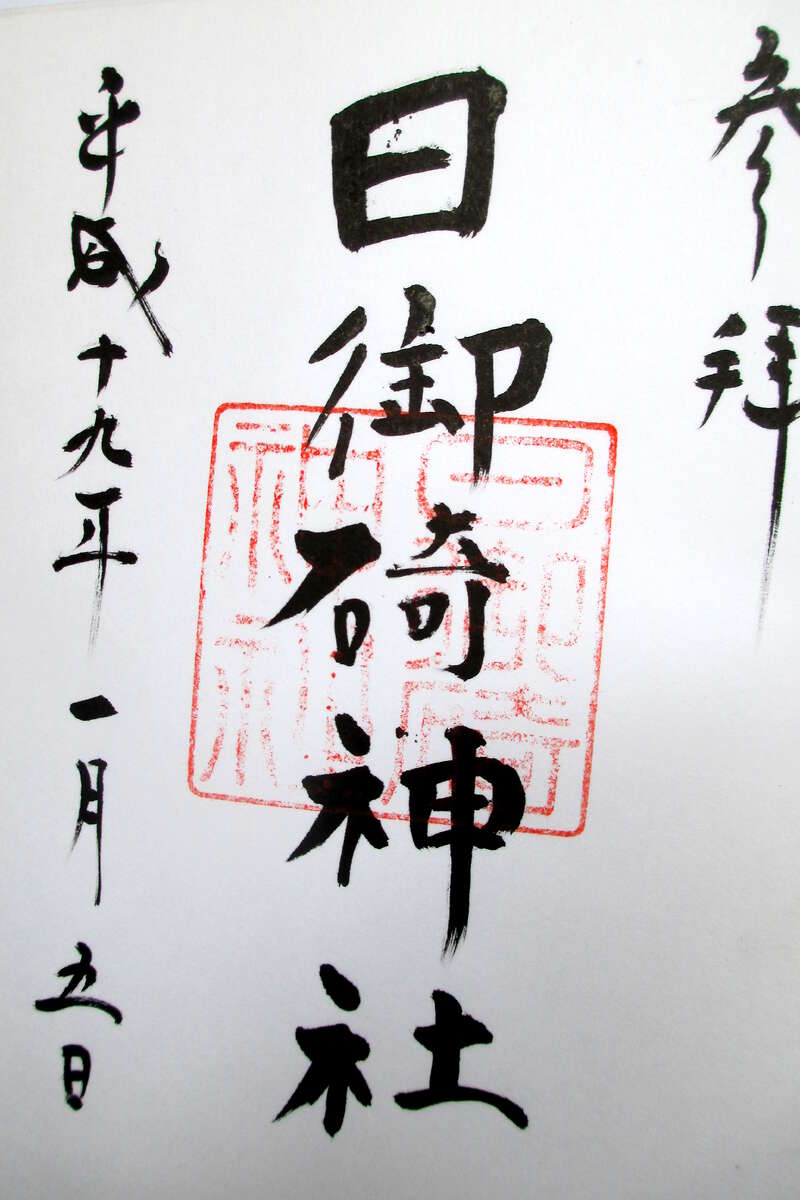 参拝
日御碕神社
平成十九年一月五日